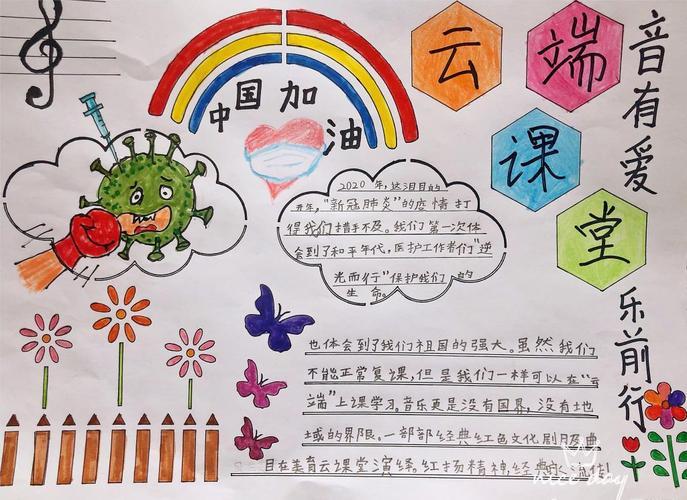 中国加油
云端课堂
音有爱乐前行
2020年,这泪目的
开年,“新冠肺炎”的疫情打
得我们措手不及。我们第一次体
会到了和平年代,医护工作者们“逆
光而行”保护我们的
生命。
也体会到了我们祖国的强大。虽然我们
不能正常复课,但是我们一样可以在“云
端”上课学习。音乐更是没有国界,没有地
域的界限。一部部经典红色文化剧及曲
目在美育云课堂演绎。红扬精神,经典
nice day